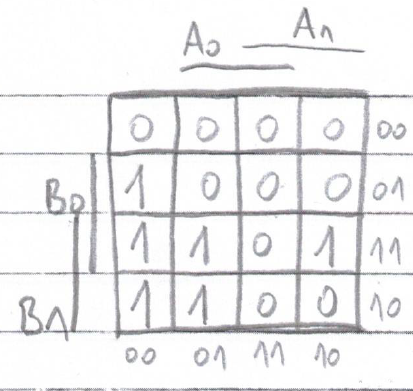 A0 A1
0 0 0 0 00
B0 1 0 0 0 01
1 1 0 1 11
B1 1 1 0 0 10
00 01 11 10